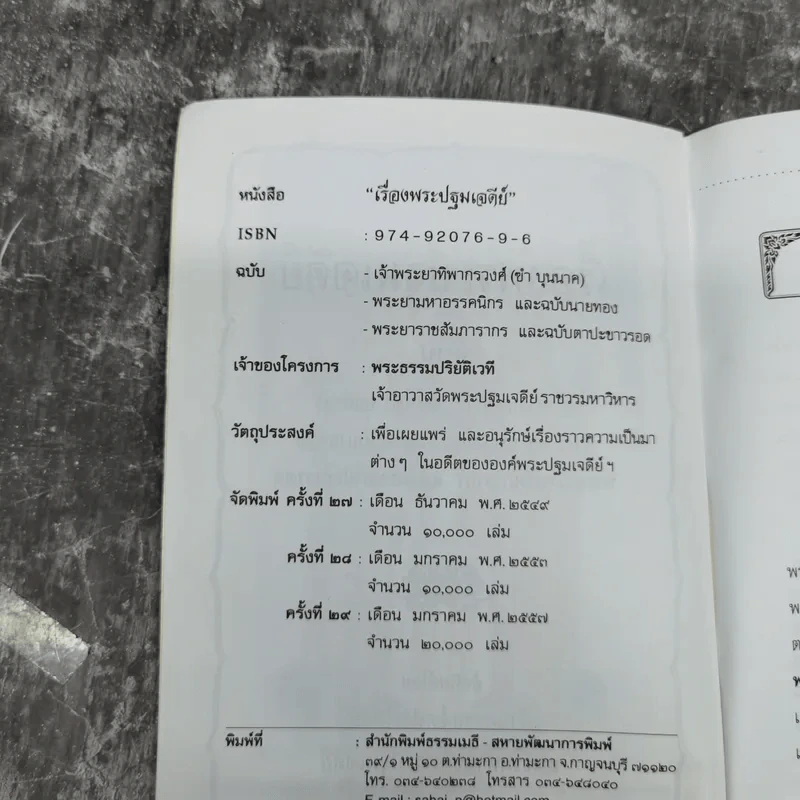 หนังสือ "เรื่องพระปฐมเจดีย์"
ISBN : 974-92076-9-6
ฉบับ - เจ้าพระยาทิพากรวงศ์ (ขำ บุนนาค)
- พระยามหาอรรคนิกร และฉบับนายทอง
- พระยาราชสัมภารากร และฉบับตาปะขาวรอด
เจ้าของโครงการ : พระธรรมปริยัติเวที
เจ้าอาวาสวัดพระปฐมเจดีย์ ราชวรมหาวิหาร
วัตถุประสงค์ : เพื่อเผยแพร่ และอนุรักษ์เรื่องราวความเป็นมา
ต่าง ๆ ในอดีตขององค์พระปฐมเจดีย์ ฯ
จัดพิมพ์ ครั้งที่ ๒๗ : เดือน ธันวาคม พ.ศ. ๒๕๔๙
จำนวน ๑๐,๐๐๐ เล่ม
ครั้งที่ ๒๘ : เดือน มกราคม พ.ศ. ๒๕๕๓
จำนวน ๑๐,๐๐๐ เล่ม
ครั้งที่ ๒๙ : เดือน มกราคม พ.ศ. ๒๕๕๗
จำนวน ๒๐,๐๐๐ เล่ม
พิมพ์ที่ : สำนักพิมพ์ธรรมเมธี - สหายพัฒนาการพิมพ์
๓๙/๑ หมู่ ๑๐ ต.ท่ามะกา อ.ท่ามะกา จ.กาญจนบุรี ๗๑๑๒๐
โทร. ๐๓๔-๖๔๐๒๓๘ โทรสาร ๐๓๔-๖๔๘๐๔๐
E-mail : sahai_p@hotmail.com